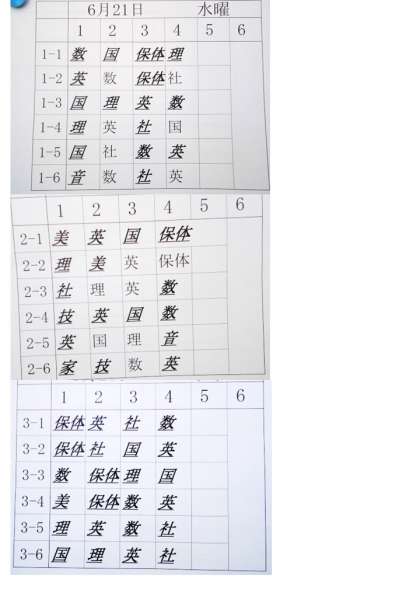 6月21日 水曜
1 2 3 4 5 6
1-1 数 国 保体 理
1-2 英 数 保体 社
1-3 国 理 英 数
1-4 理 英 社 国
1-5 国 社 数 英
1-6 音 数 社 英
1 2 3 4 5 6
2-1 美 英 国 保体
2-2 理 美 英 保体
2-3 社 理 英 数
2-4 技 英 国 数
2-5 英 国 理 音
2-6 家 技 数 英
1 2 3 4 5 6
3-1 保体 英 社 数
3-2 保体 社 国 英
3-3 数 保体 理 国
3-4 美 保体 数 英
3-5 理 英 数 社
3-6 国 理 英 社